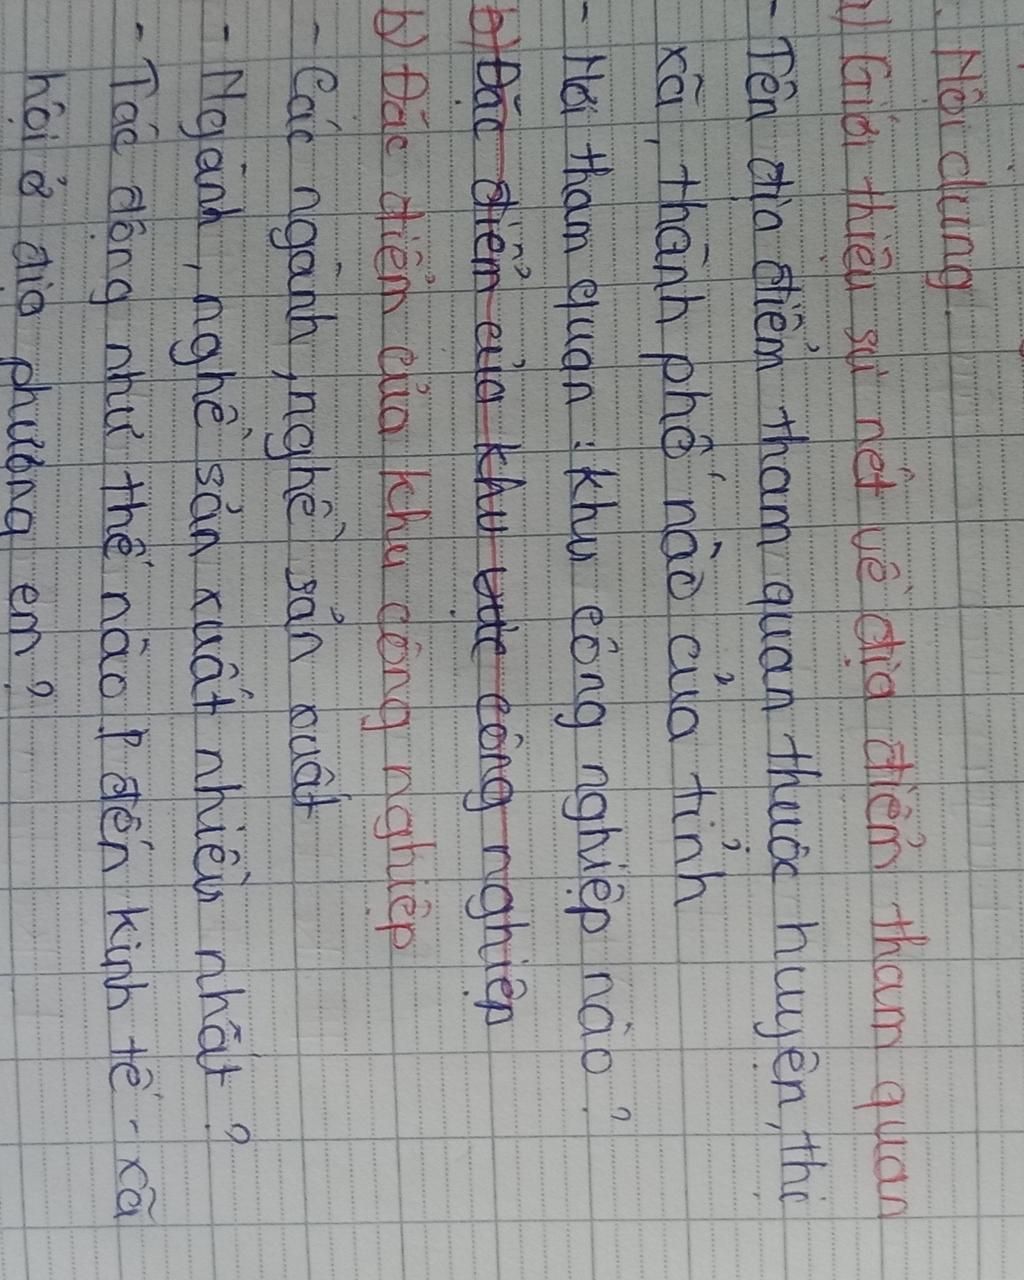 . Nội dung
a) Giới thiệu sơ nét về địa điểm tham quan
- Tên địa điểm tham quan thuộc huyện, thị
xã, thành phố nào của tỉnh
- Nơi tham quan : khu công nghiệp nào ?
b) Đặc điểm của khu vực công nghiệp
b) Đặc điểm của khu công nghiệp
- Các ngành, nghề sản xuất
- Ngành, nghề sản xuất nhiều nhất ?
- Tác động như thế nào đến kinh tế - xã
hội ở địa phương em ?